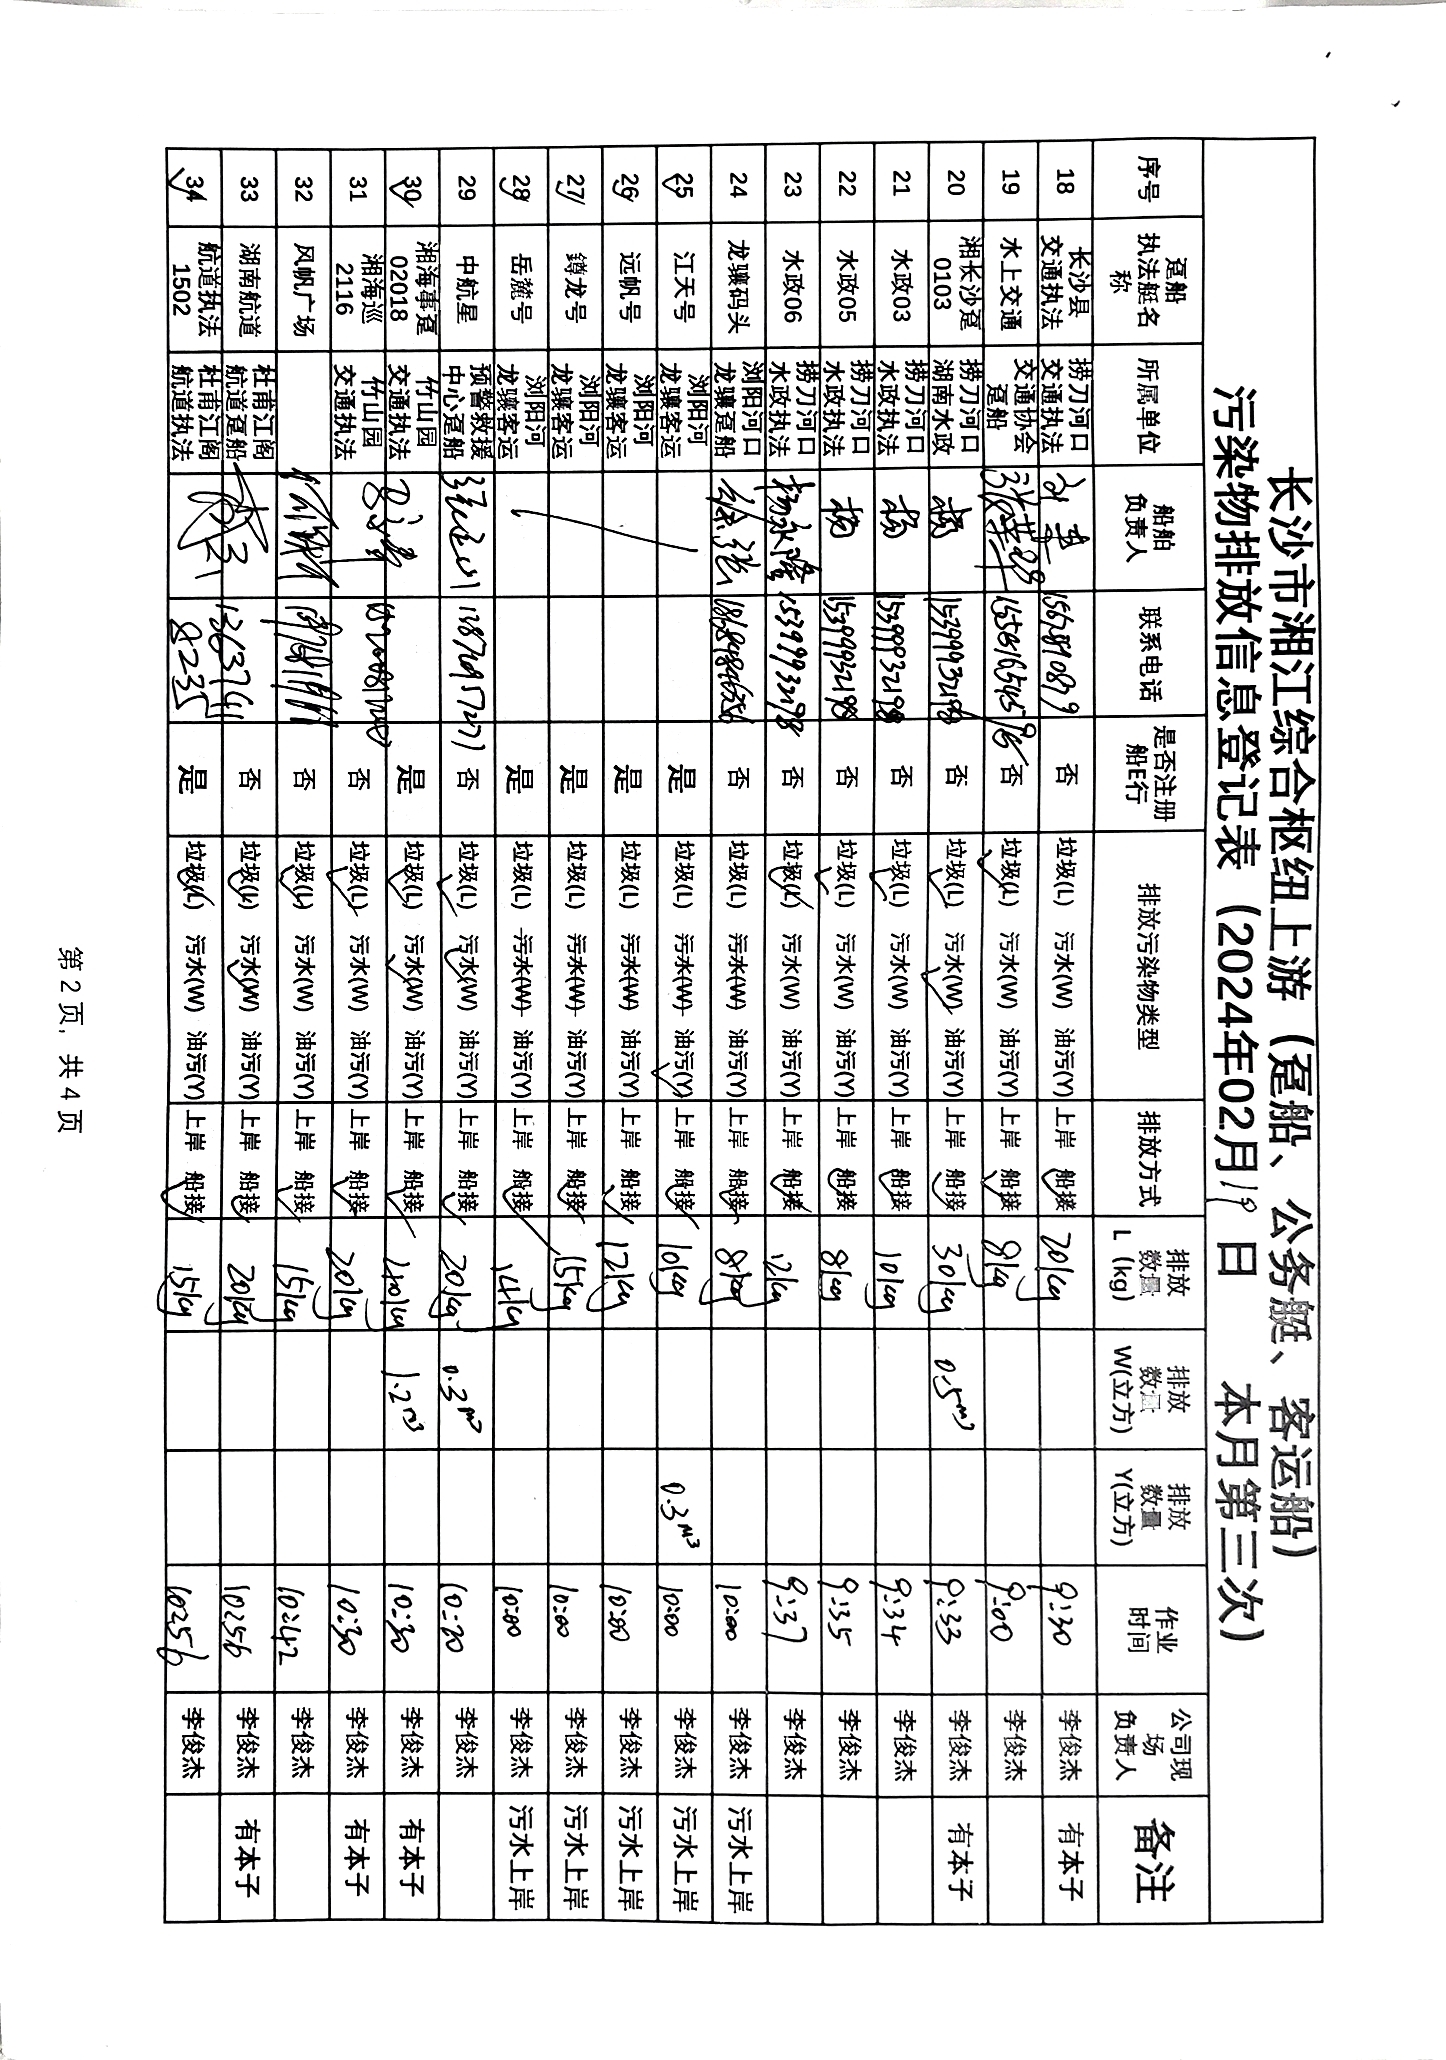 长沙市湘江综合枢纽上游（趸船、公务艇、客运船）
污染物排放信息登记表（2024年02月19日 本月第三次）
序号 趸船执法艇名称 所属单位 船舶负责人 联系电话 是否注册船E行 排放污染物类型 排放方式 排放数量L（kg） 排放数量W(立方) 排放数量Y(立方) 作业时间 公司现场负责人 备注
18 长沙县交通执法 捞刀河口交通执法 否 垃圾(L) 污水(W) 油污(Y) 上岸 船接 20kg 9:30 李俊杰 有本子
19 水上交通 交通协会趸船 否 垃圾(L) 污水(W) 油污(Y) 上岸 船接 8kg 9:00 李俊杰
20 湘长沙趸0103 捞刀河口湖南水政 杨 15399932198 否 垃圾(L) 污水(W) 油污(Y) 上岸 船接 30kg 0.5m³ 9:33 李俊杰 有本子
21 水政03 捞刀河口水政执法 杨 15399932198 否 垃圾(L) 污水(W) 油污(Y) 上岸 船接 10kg 9:34 李俊杰
22 水政05 捞刀河口水政执法 杨 15399932198 否 垃圾(L) 污水(W) 油污(Y) 上岸 船接 8kg 9:35 李俊杰
23 水政06 捞刀河口水政执法 杨永隆 15399932198 否 垃圾(L) 污水(W) 油污(Y) 上岸 船接 12kg 9:37 李俊杰
24 龙骧码头 浏阳河口龙骧趸船 否 垃圾(L) 污水(W) 油污(Y) 上岸 船接 8kg 10:00 李俊杰 污水上岸
25 江天号 浏阳河龙骧客运 是 垃圾(L) 污水(W) 油污(Y) 上岸 船接 10kg 0.3m³ 10:00 李俊杰 污水上岸
26 远帆号 浏阳河龙骧客运 是 垃圾(L) 污水(W) 油污(Y) 上岸 船接 12kg 10:00 李俊杰 污水上岸
27 鐏龙号 浏阳河龙骧客运 是 垃圾(L) 污水(W) 油污(Y) 上岸 船接 15kg 10:00 李俊杰 污水上岸
28 岳麓号 浏阳河龙骧客运 是 垃圾(L) 污水(W) 油污(Y) 上岸 船接 14kg 10:00 李俊杰 污水上岸
29 中航星 预警救援中心趸船 否 垃圾(L) 污水(W) 油污(Y) 上岸 船接 20kg 0.3m³ 10:20 李俊杰
30 湘海事趸02018 竹山园交通执法 是 垃圾(L) 污水(W) 油污(Y) 上岸 船接 40kg 1.2m³ 10:30 李俊杰 有本子
31 湘海巡2116 竹山园交通执法 否 垃圾(L) 污水(W) 油污(Y) 上岸 船接 20kg 10:30 李俊杰 有本子
32 风帆广场 否 垃圾(L) 污水(W) 油污(Y) 上岸 船接 15kg 10:42 李俊杰
33 湖南航道 杜甫江阁航道趸船 否 垃圾(L) 污水(W) 油污(Y) 上岸 船接 20kg 10:56 李俊杰 有本子
34 航道执法1502 杜甫江阁航道执法 8235 是 垃圾(L) 污水(W) 油污(Y) 上岸 船接 15kg 10:56 李俊杰
第 2 页，共 4 页